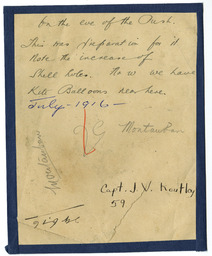 On the eve of the Push.
This was preparation for it
Note the increase of
Shell holes. Now we have
Kite Balloons near here.
July - 1916 -
Montauban
Montauban
Capt. J. V.
59